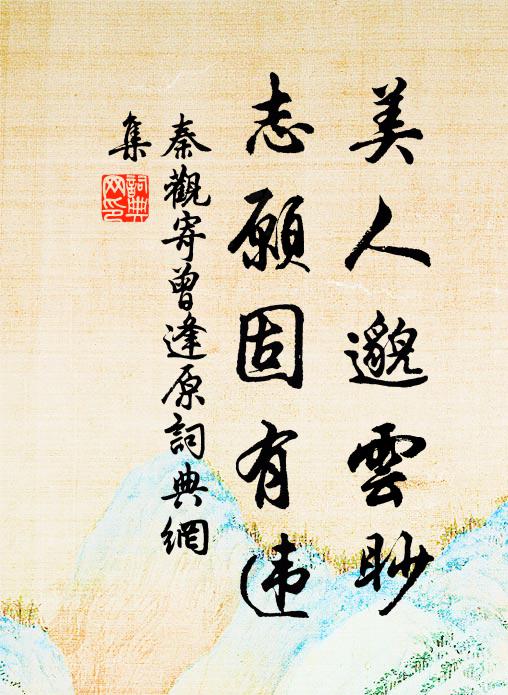 美人邈雲眇
志願固有违
秦觀寄曾逢原詞典網
集
詞典
网印